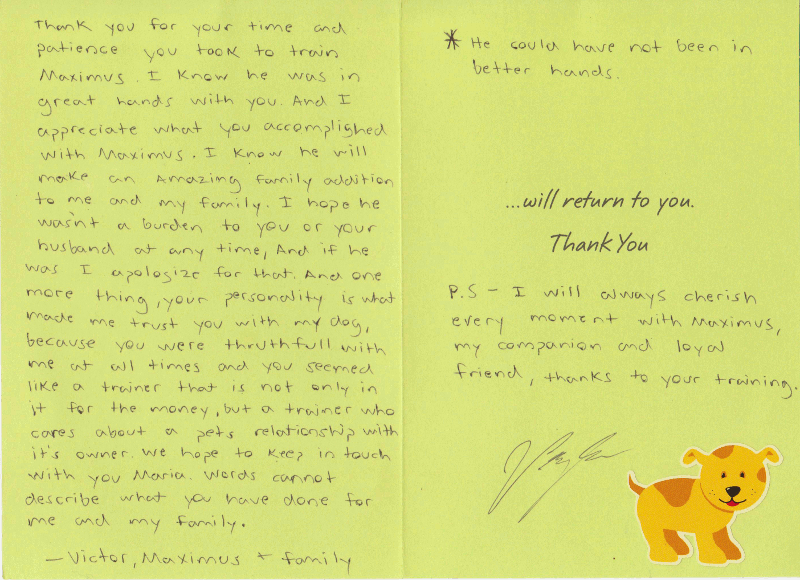 Thank you for your time and
patience you took to train
Maximus. I know he was in
great hands with you. And I
appreciate what you accomplighed
with Maximus. I know he will
make an Amazing family addition
to me and my family. I hope he
wasn't a burden to you or your
husband at any time, And if he
was I apologize for that. And one
more thing, your personality is what
made me trust you with my dog,
because you were thruthfull with
me at all times and you seemed
like a trainer that is not only in
it for the money, but a trainer who
cares about a pets relationship with
it's owner. We hope to keep in touch
with you Maria. Words cannot
describe what you have done for
me and my family.
- Victor, Maximus + family
* He could have not been in
better hands.
...will return to you.
Thank You
P.S - I will always cherish
every moment with Maximus,
my companion and loyal
friend, thanks to your training.